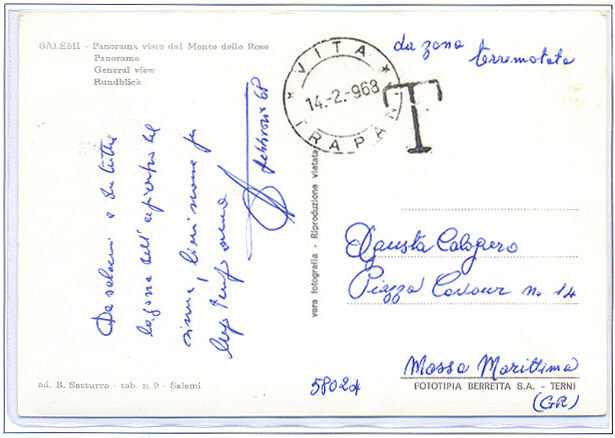 SALEMI - Panorama visto dal Monte delle Rose
Panorama
General view
Rundblick
VITA
14.-2.-968
TRAPANI
T
da zona terremotata
Da Salemi e da tutta
la zona dell'
febbraio 68
vera fotografia - Riproduzione vietata
Fausta Calogero
Piazza Cavour n. 14
58024
Massa Marittima
FOTOTIPIA BERRETTA S.A. - TERNI
(GR)
ed. B. Sasturro - tab. n. 9 - Salemi